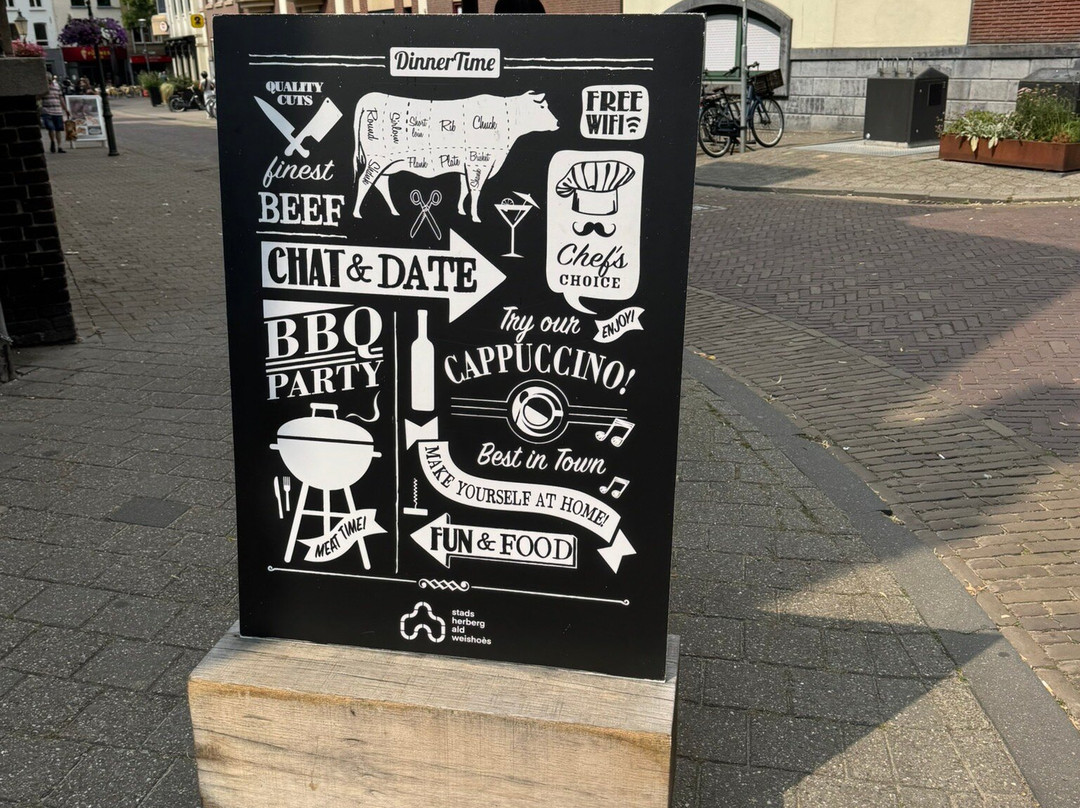 DinnerTime
QUALITY
CUTS
finest
BEEF
Round
Sirloin
Short
loin
Rib
Chuck
Shank
Flank
Plate
Brisket
Shank
FREE
WIFI
Chef's
CHOICE
ENJOY!
CHAT & DATE
BBQ
PARTY
MEAT TIME!
Try our
CAPPUCCINO!
Best in Town
MAKE YOURSELF AT HOME!
FUN & FOOD
stads
herberg
ald
weishoès
2